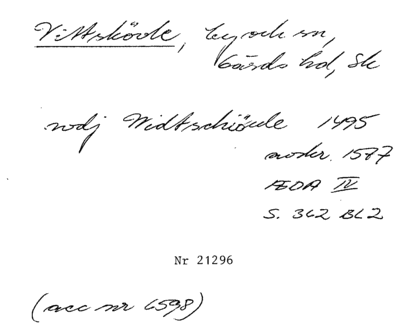 Vittskövle, by och sn,
Gärds hd, Sk
rodj Widtschiöule 1495
avskr. 1577
ÆDA IV
S. 362 BL2
Nr 21296
(acc nr 6598)